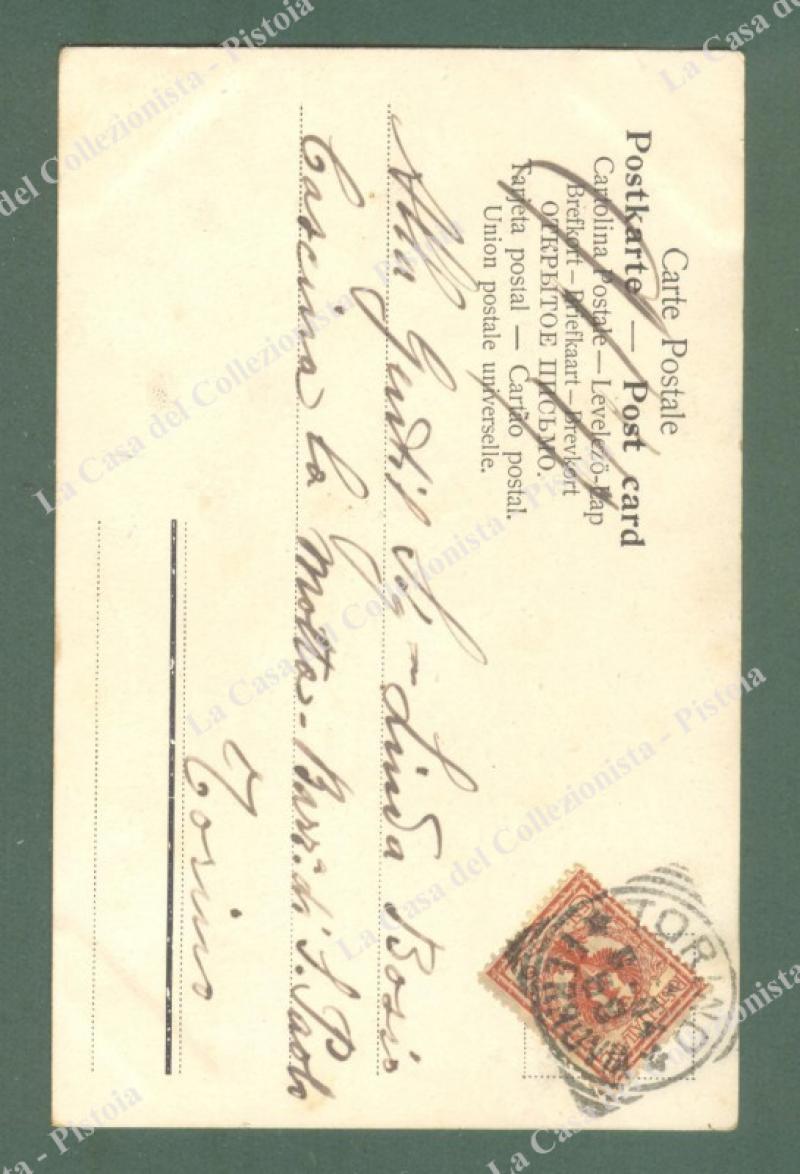 Carte Postale
Postkarte — Post card
Cartolina Postale — Levelező-Lap
Brefkort — Briefkaart — Brevkort
ОТКРЫТОЕ ПИСЬМО.
Tarjeta postal — Cartão postal.
Union postale universelle.
Alla Gentil Sig- Linda Bosio
Cascina la Motta - Barr. di S. Paolo
Torino
TORINO
FERROVIA
La Casa del Collezionista - Pistoia